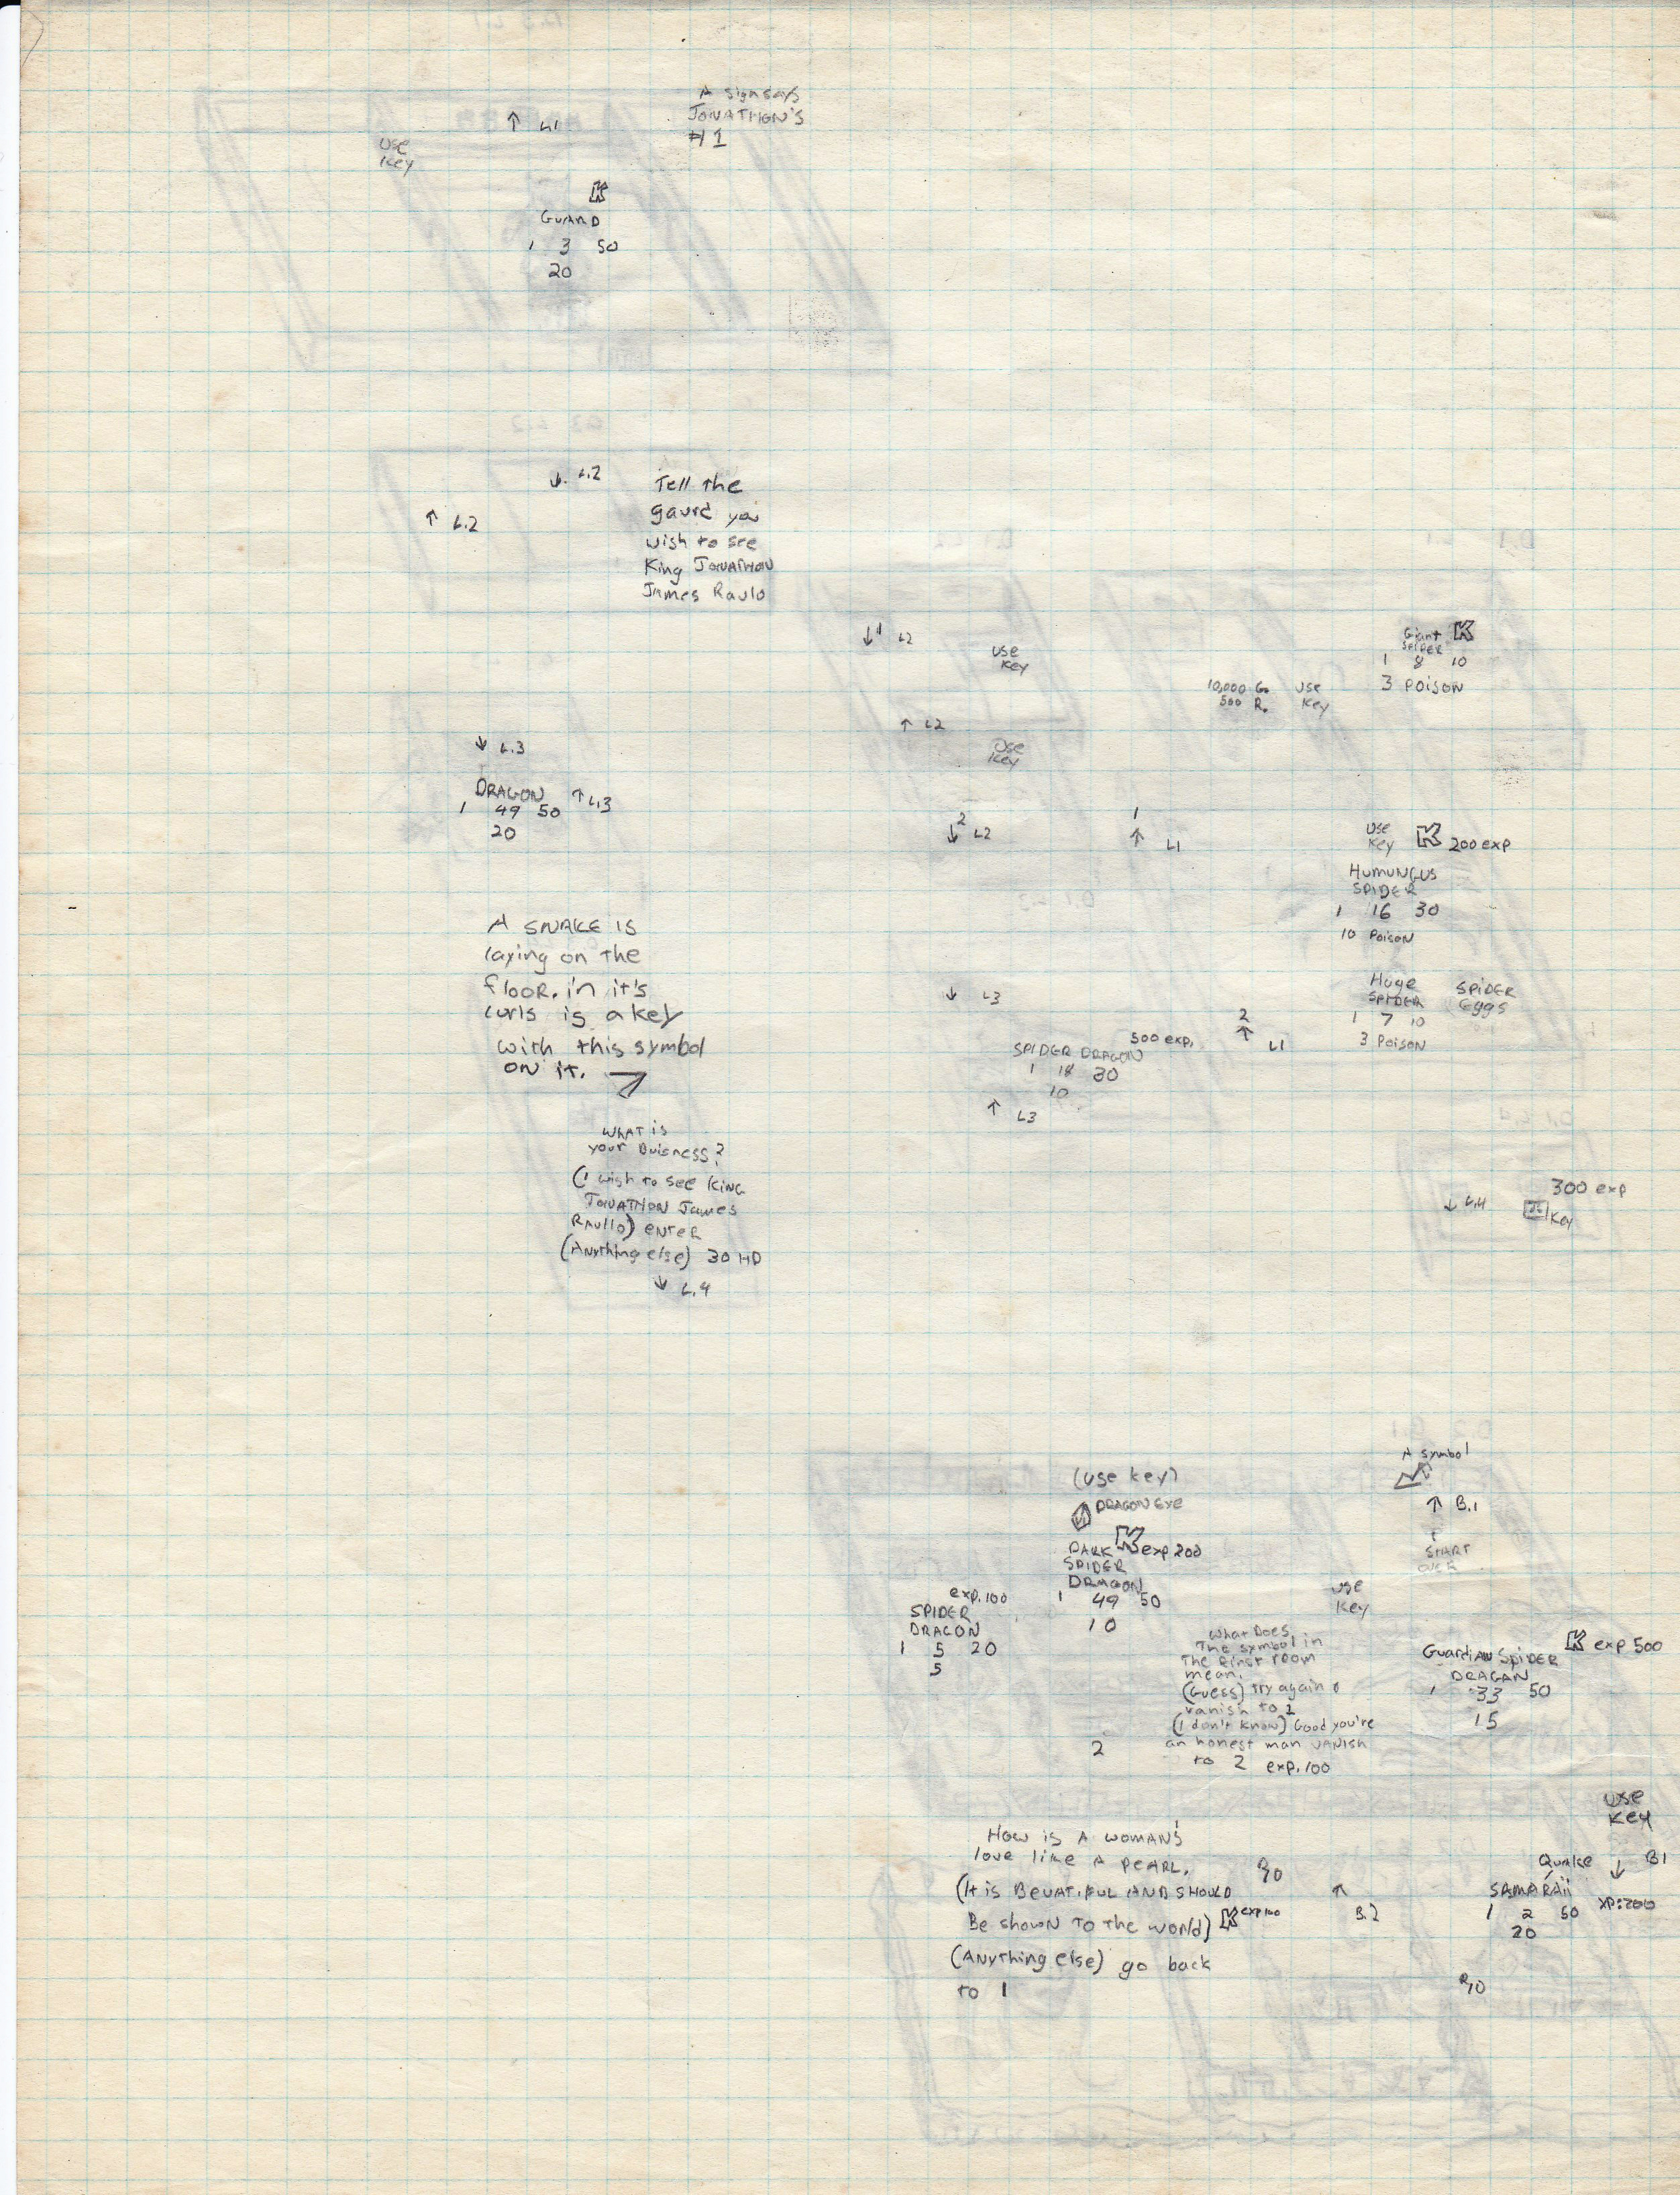 A sign says
JONATHON'S
#1
↑ L1
Use
Key
K
GUARD
1 3 50
20
↓ L.2
↑ L.2
Tell the
gaurd you
wish to see
King JONATHON
James Raulo
↓ L.3
DRAGON ↑ L.3
1 49 50
20
A SNAKE IS
laying on the
floor. in it's
curls is a key
with this symbol
ON it.
WHAT is
your Buisness?
(I wish to see KING
JONATHON James
Raullo) enter
(Anything else) 30 HD
↓ L.4
↓ 1 L2
USE
Key
↑ L2
Use
Key
2
↓ L2
1
↑ L1
10,000 G.
500 R.
USE
Key
Giant K
SPIDER
1 8 10
3 POISON
USE
Key K 200 exp
HUMUNGUS
SPIDER
1 16 30
10 Poison
Huge
SPIDER
1 7 10
3 Poison
SPIDER
Eggs
↓ L3
500 exp.
SPIDER DRAGON
1 18 30
10
↑ L3
2
↑ L1
300 exp
↓ L.4
Key
A symbol
↑ B.1
START
OVER
(use key)
DRAGON EYE
K exp 200
DARK
SPIDER
DRAGON
1 49 50
10
exp. 100
SPIDER
DRAGON
1 5 20
5
USE
Key
What Does
The symbol in
The first room
mean.
(Guess) try again
vanish to 1
(I don't know) Good you're
an honest man VANISH
to 2 exp. 100
2
K exp 500
Guardian SPIDER
DRAGAN
1 33 50
15
USE
Key
How is A WOMAN'S
love like A PEARL.
(It is BEUATIFUL AND SHOULD
Be shown TO THE world) K exp 100
(Anything else) go back
to 1
↑
B.2
Quake ↓ B1
SAMARAii
1 2 50 XP:200
20